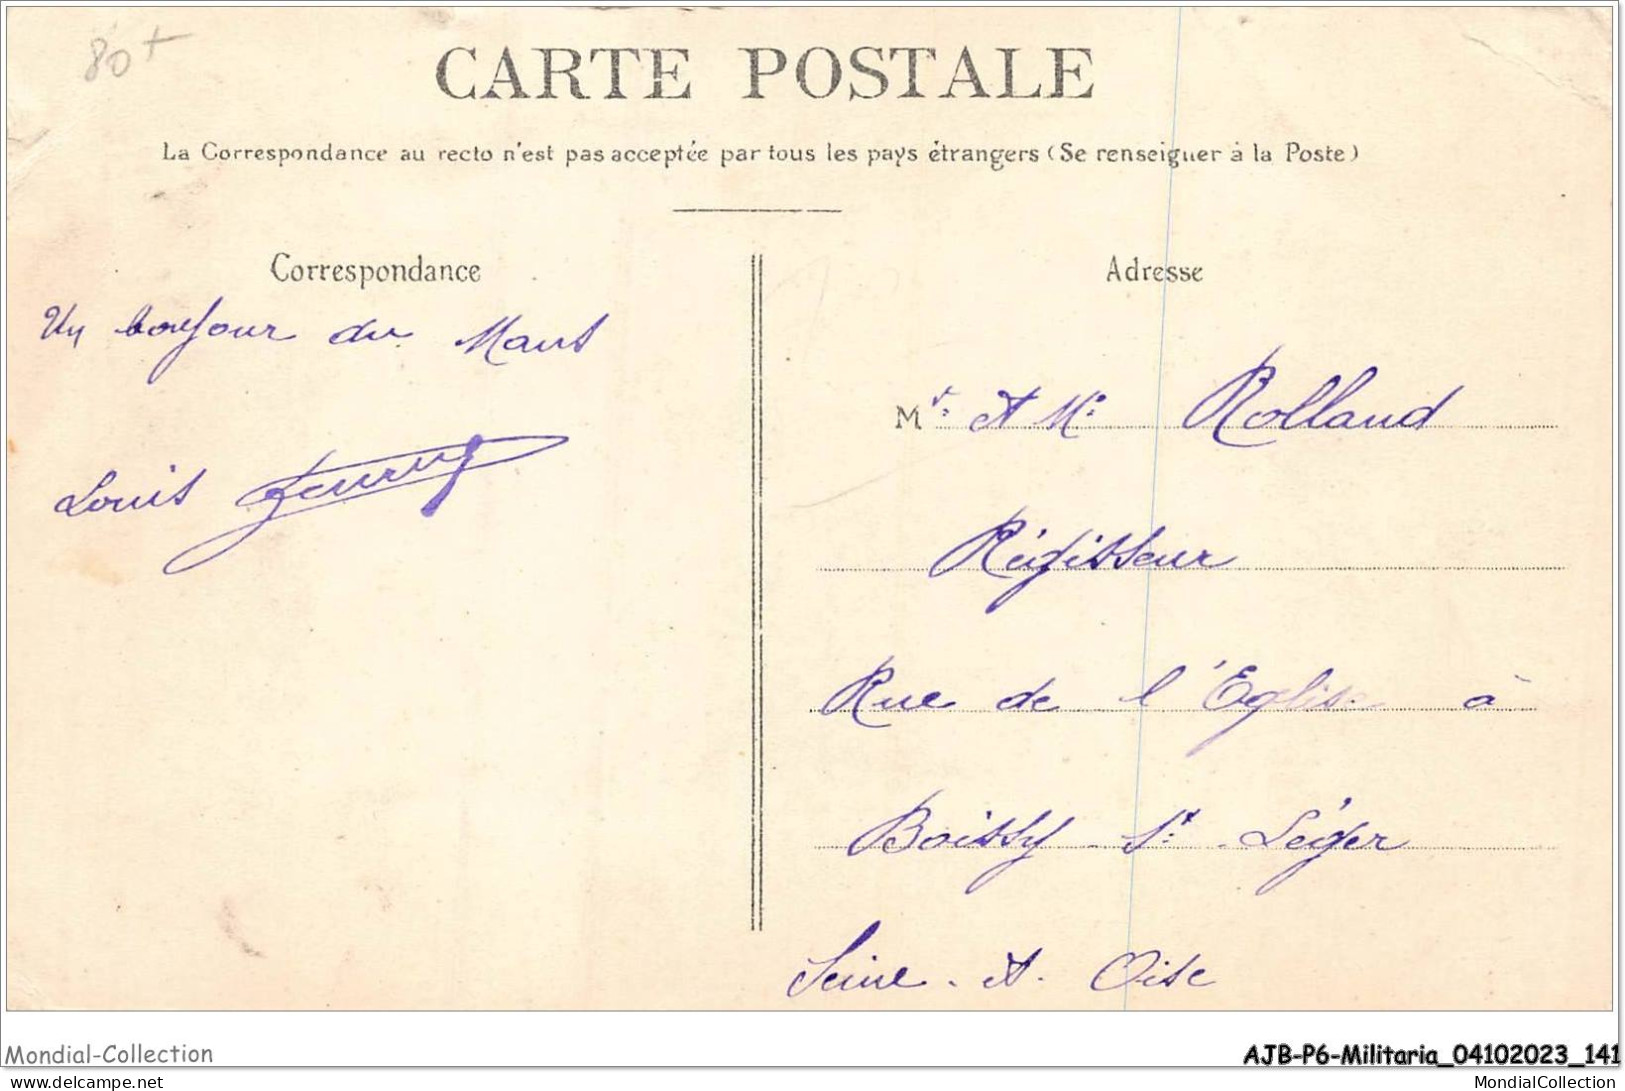 80+
CARTE POSTALE
La Correspondance au recto n'est pas acceptée par tous les pays étrangers (Se renseigner à la Poste)
Correspondance
Un bonjour du Mans
Louis
Adresse
Mr. et Me. Rolland
Régisseur
Rue de l'Eglise à
Boissy - St. - Léger
Seine - et - Oise
Mondial-Collection
AJB-P6-Militaria_04102023_141
www.delcampe.net
MondialCollection